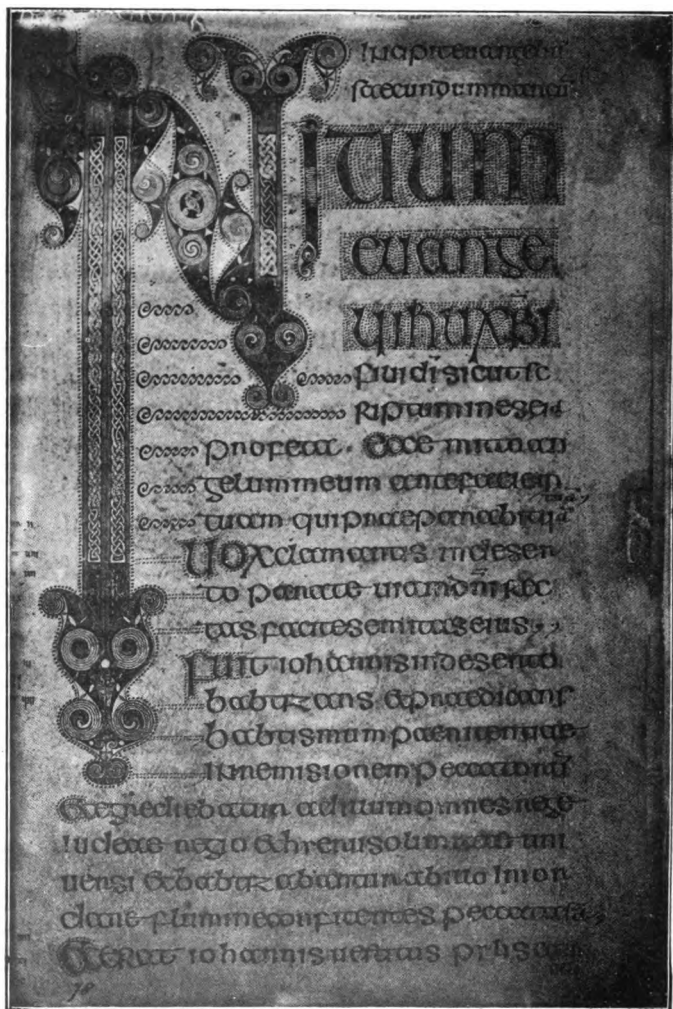 Incipit euangeliū
secundum marcū
INITIUM
euange
lii ihu xpi
fili di sicut sc
riptum in esei a
profeta · Ecce mitto an
gelum meum ante faciem
tuam qui praeparabit
Uox clamantis in deser
to parate uiam dnī rec
tas facite semitas eius
Fuit iohannis in deserto
babtizans et praedicans
babtismum paenitentiae
in remisionem peccatorū
Et egrediebatur ad illum omnes
Iudeae regio et
uersi et babtizabantur ab illo in ior
dane flumine confitentes peccata sua
Et erat iohannis uestitus pilis cam
78